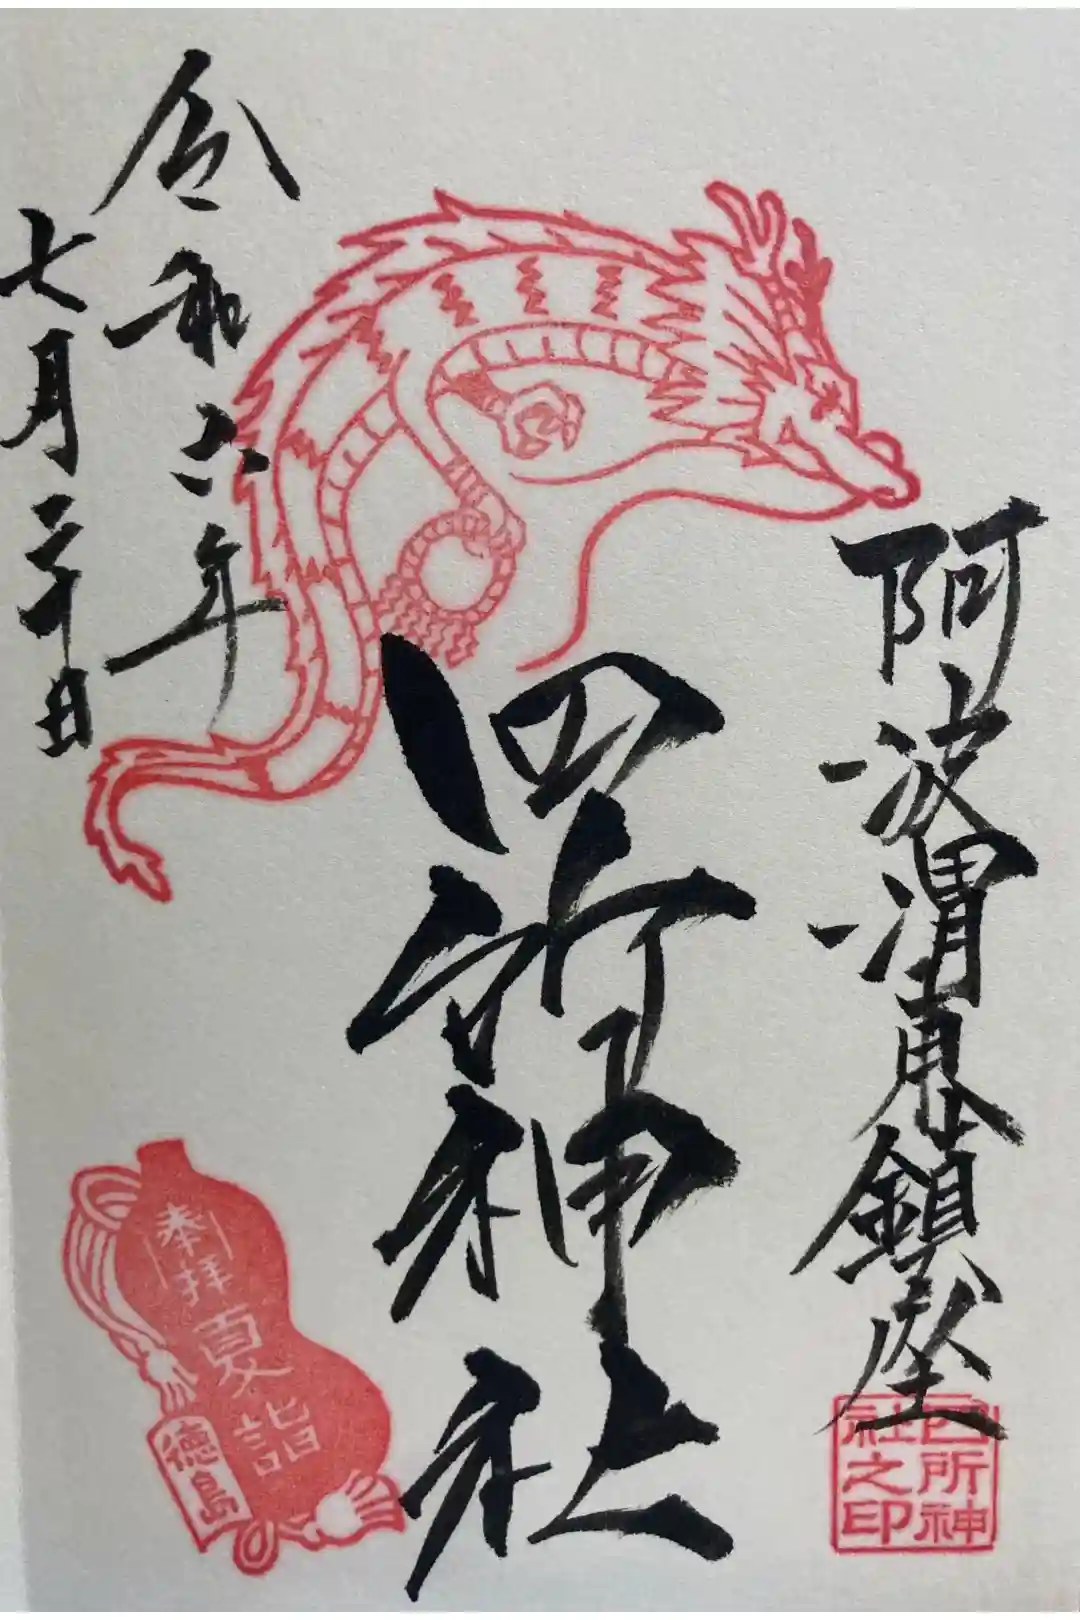 阿波渭東鎮座
四所神社
令和六年
七月二十日
奉拝
夏詣
徳島
四所神
社之印